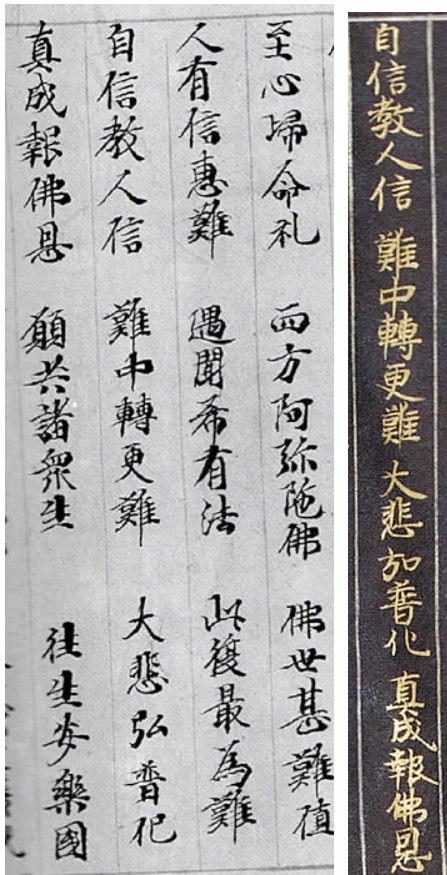 至心歸命礼 西方阿弥陁佛 佛世甚難值
人有信惠難 遇聞希有法 此復最為難
自信教人信 難中轉更難 大悲弘普化
真成報佛恩 願共諸衆生 往生安樂國
自信教人信 難中轉更難 大悲加普化 真成報佛恩